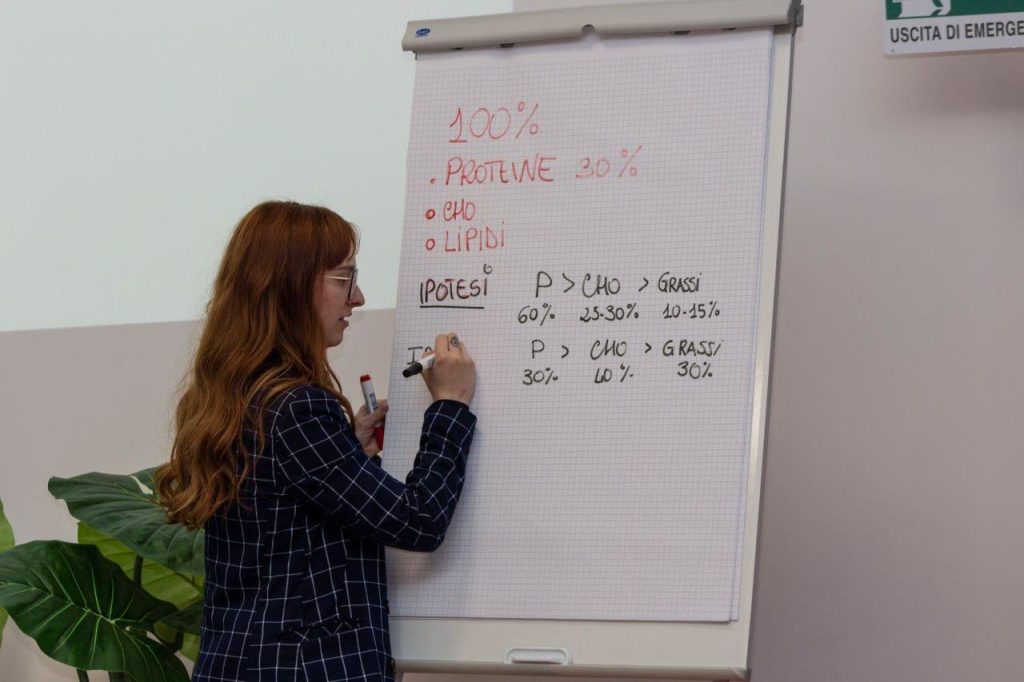 USCITA DI EMERGE
100%
• PROTEINE 30%
o CHO
o LIPIDI
IPOTESI P > CHO > GRASSI
60% 25-30% 10-15%
P > CHO > GRASSI
30% 40% 30%